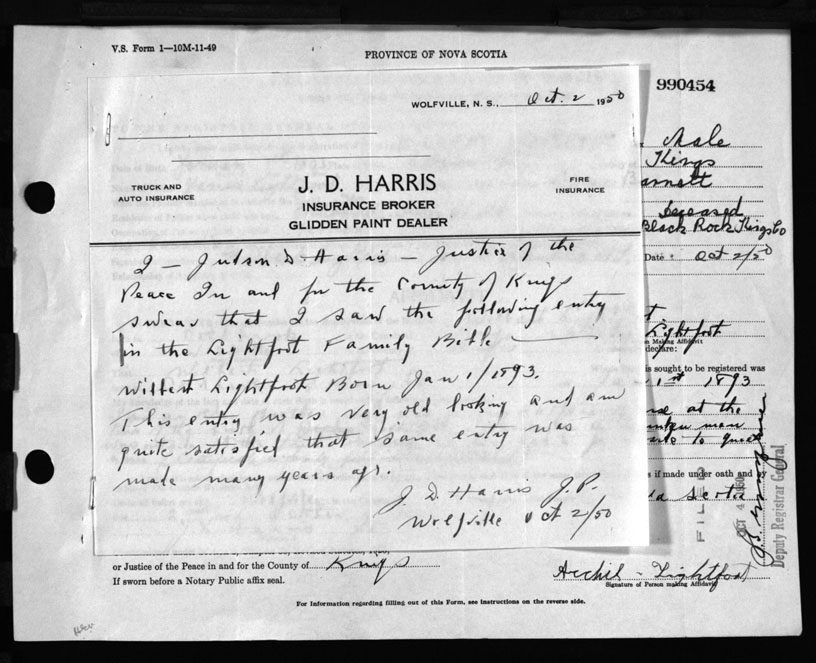 V.S. Form 1—10M-11-49
PROVINCE OF NOVA SCOTIA
990454
WOLFVILLE, N. S., Oct. 2 1950
TRUCK AND
AUTO INSURANCE
J. D. HARRIS
INSURANCE BROKER
GLIDDEN PAINT DEALER
FIRE
INSURANCE
I - Judson D. Harris - Justice of the
Peace In and for the County of Kings
swear that I saw the following entry
in the Lightfoot Family Bible
Wilbert Lightfoot Born Jan 1/1893.
This entry was very old looking and am
quite satisfied that same entry was
made many years ago.
J. D. Harris J.P.
Wolfville Oct 2/50
Male
Kings
Deceased
Black Rock Kings Co
Date Oct 2/50
Lightfoot
n Making Affidavit
declare:
is sought to be registered was
1st 1893
at the
man
to
s if made under oath and by
Scotia
FILED
OCT 4 1950
Deputy Registrar General
or Justice of the Peace in and for the County of Kings
If sworn before a Notary Public affix seal.
Archie Lightfoot
Signature of Person making Affidavit
For Information regarding filling out of this Form, see instructions on the reverse side.